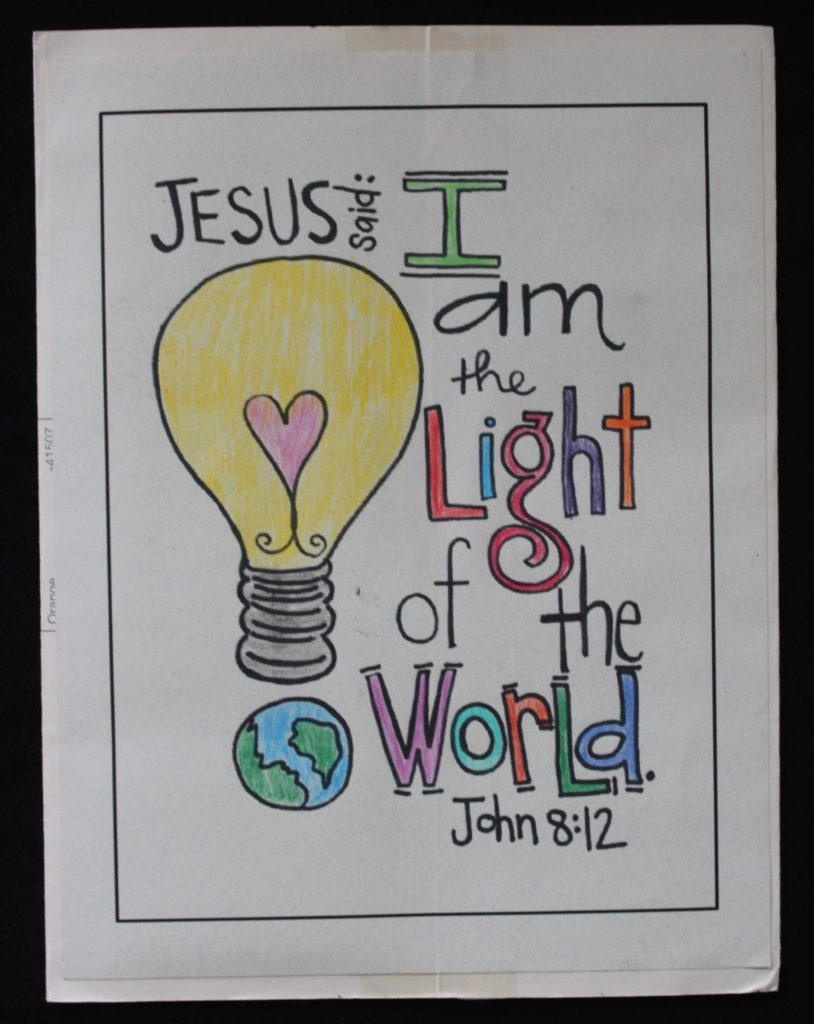 JESUS said:
I
am
the
Light
of the
WorLd.
John 8:12
-41507
Orange